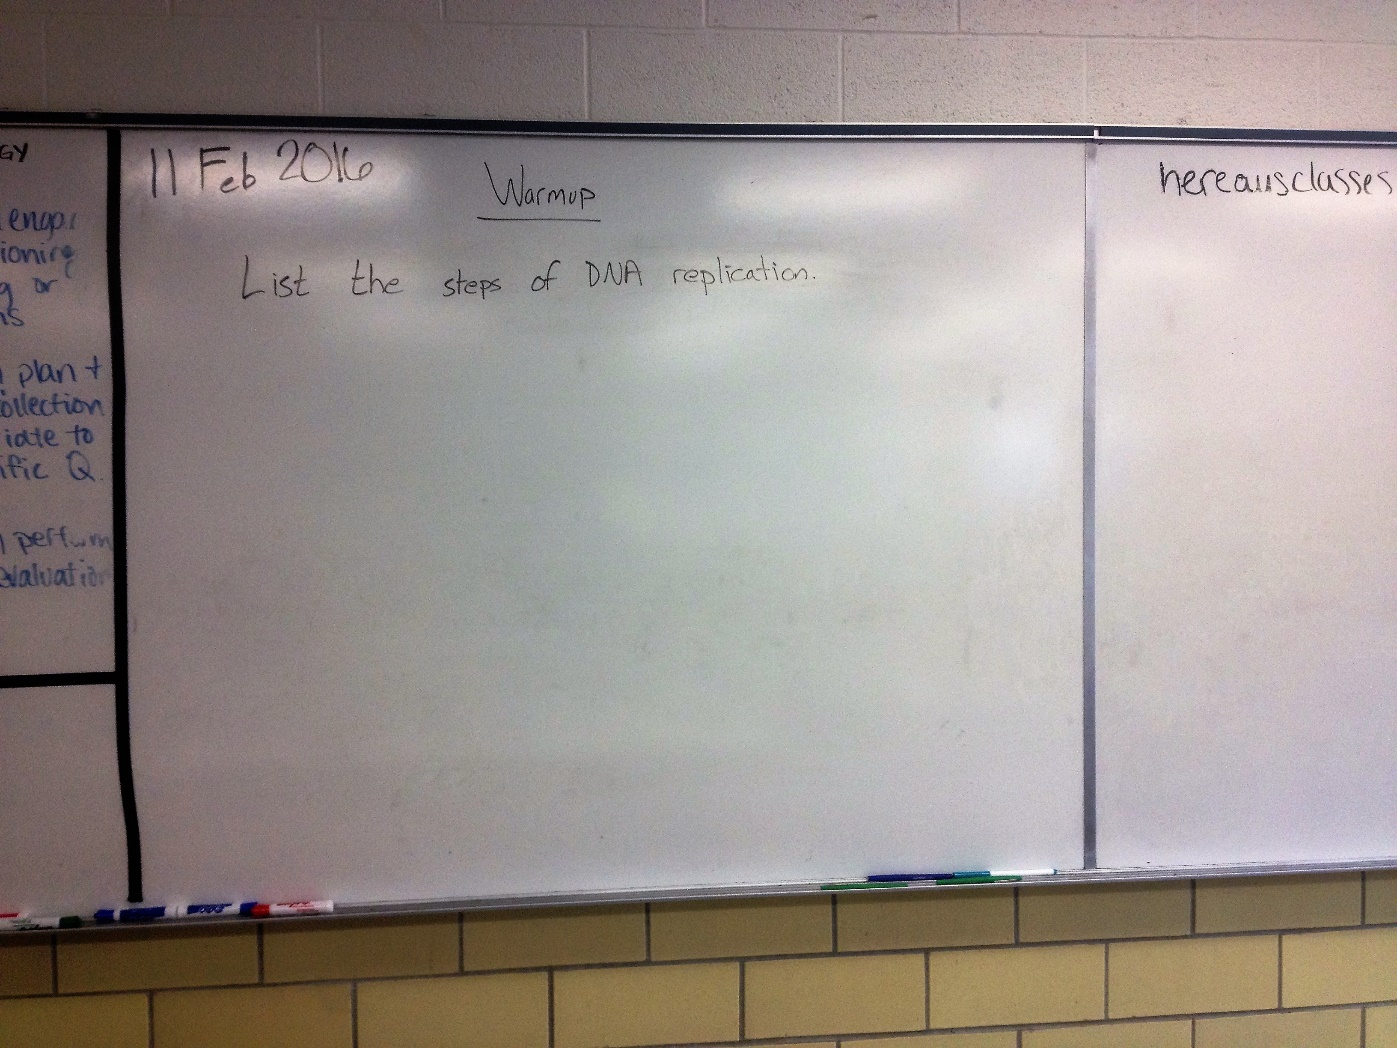 GY
ioning
g or
ns
plan +
ollection
iate to
ific Q.
perform
evaluation
11 Feb 2016
Warmup
List the steps of DNA replication.
hereausclasses